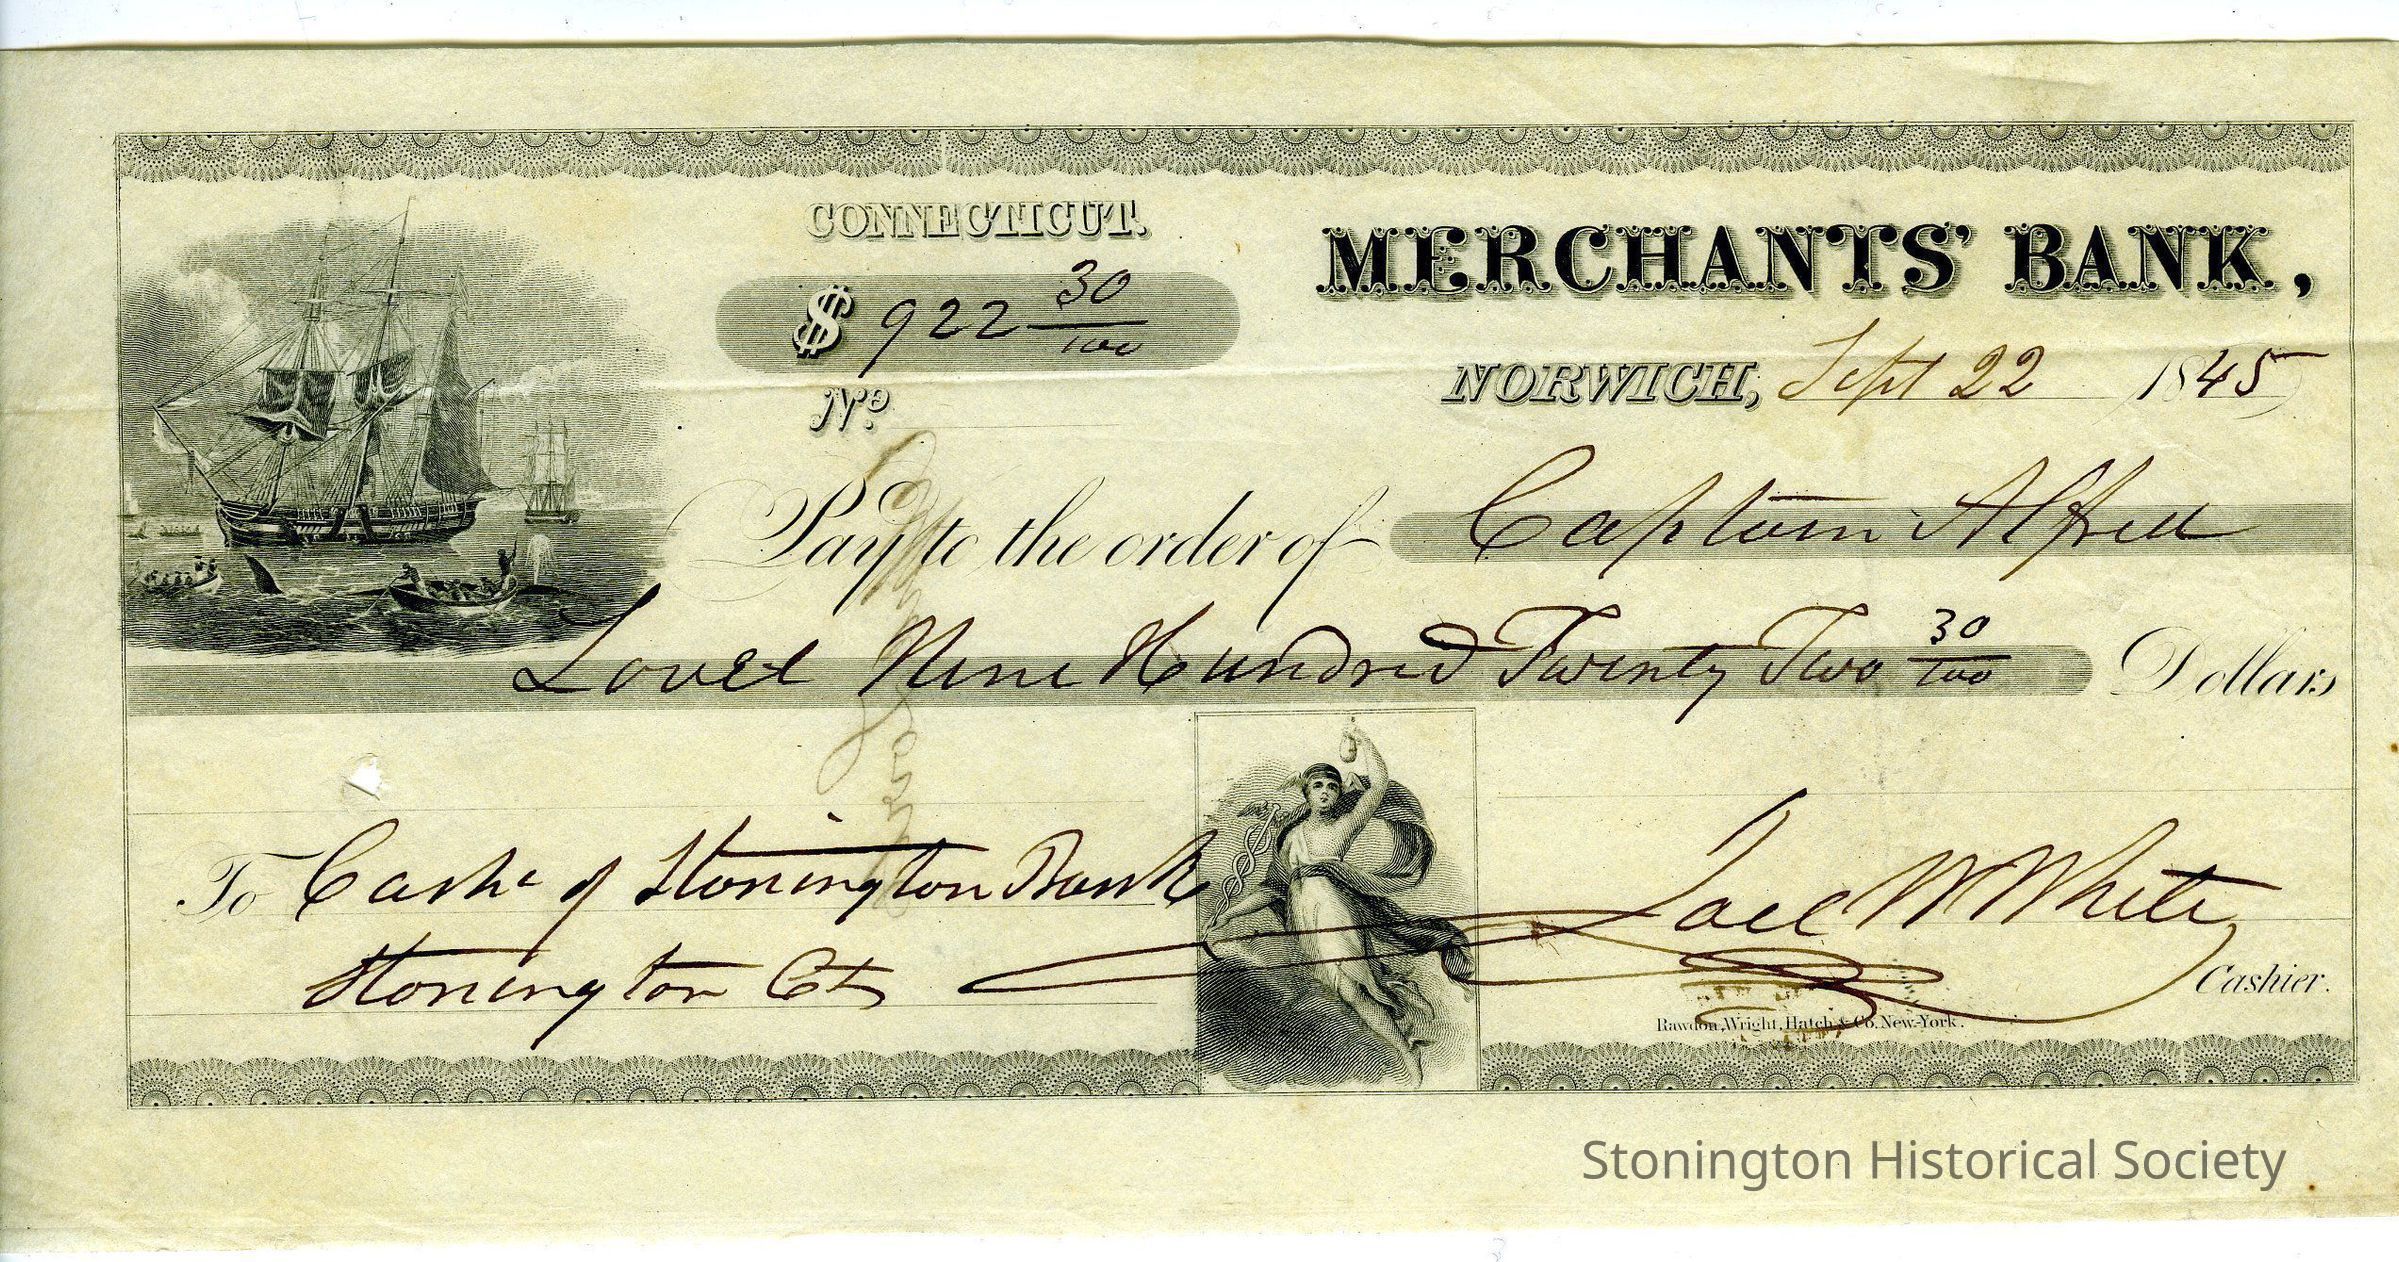 CONNECTICUT.
MERCHANTS' BANK,
$ 922 30/100
NORWICH, Sept 22 1845
No.
Pay to the order of Captain Alfred
Lovel Nine Hundred Twenty Two 30/100 Dollars
To Cashr of Stonington Bank
Stonington Ct
Joel W White
Cashier.
Rawdon, Wright, Hatch & Co. New-York.
Stonington Historical Society